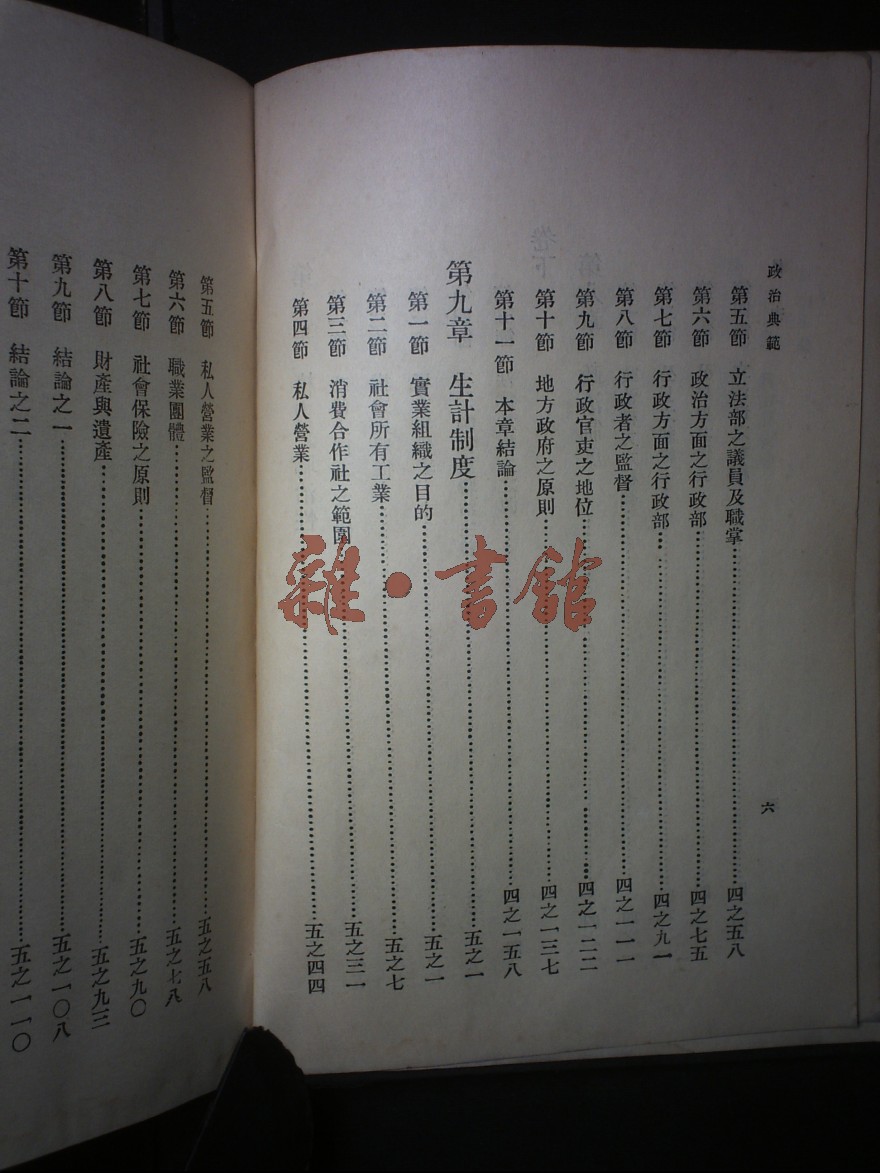 政治典範
六
第五節 立法部之議員及職掌……四之五八
第六節 政治方面之行政部……四之七五
第七節 行政方面之行政部……四之九一
第八節 行政者之監督……四之一一一
第九節 行政官吏之地位……四之一二二
第十節 地方政府之原則……四之一三七
第十一節 本章結論……四之一五八
第九章 生計制度……五之一
第一節 實業組織之目的……五之一
第二節 社會所有工業……五之七
第三節 消費合作社之範圍……五之三一
第四節 私人營業……五之四四
第五節 私人營業之監督……五之五八
第六節 職業團體……五之七八
第七節 社會保險之原則……五之九〇
第八節 財產與遺產……五之九三
第九節 結論之一……五之一〇八
第十節 結論之二……五之一一〇
雜·書館